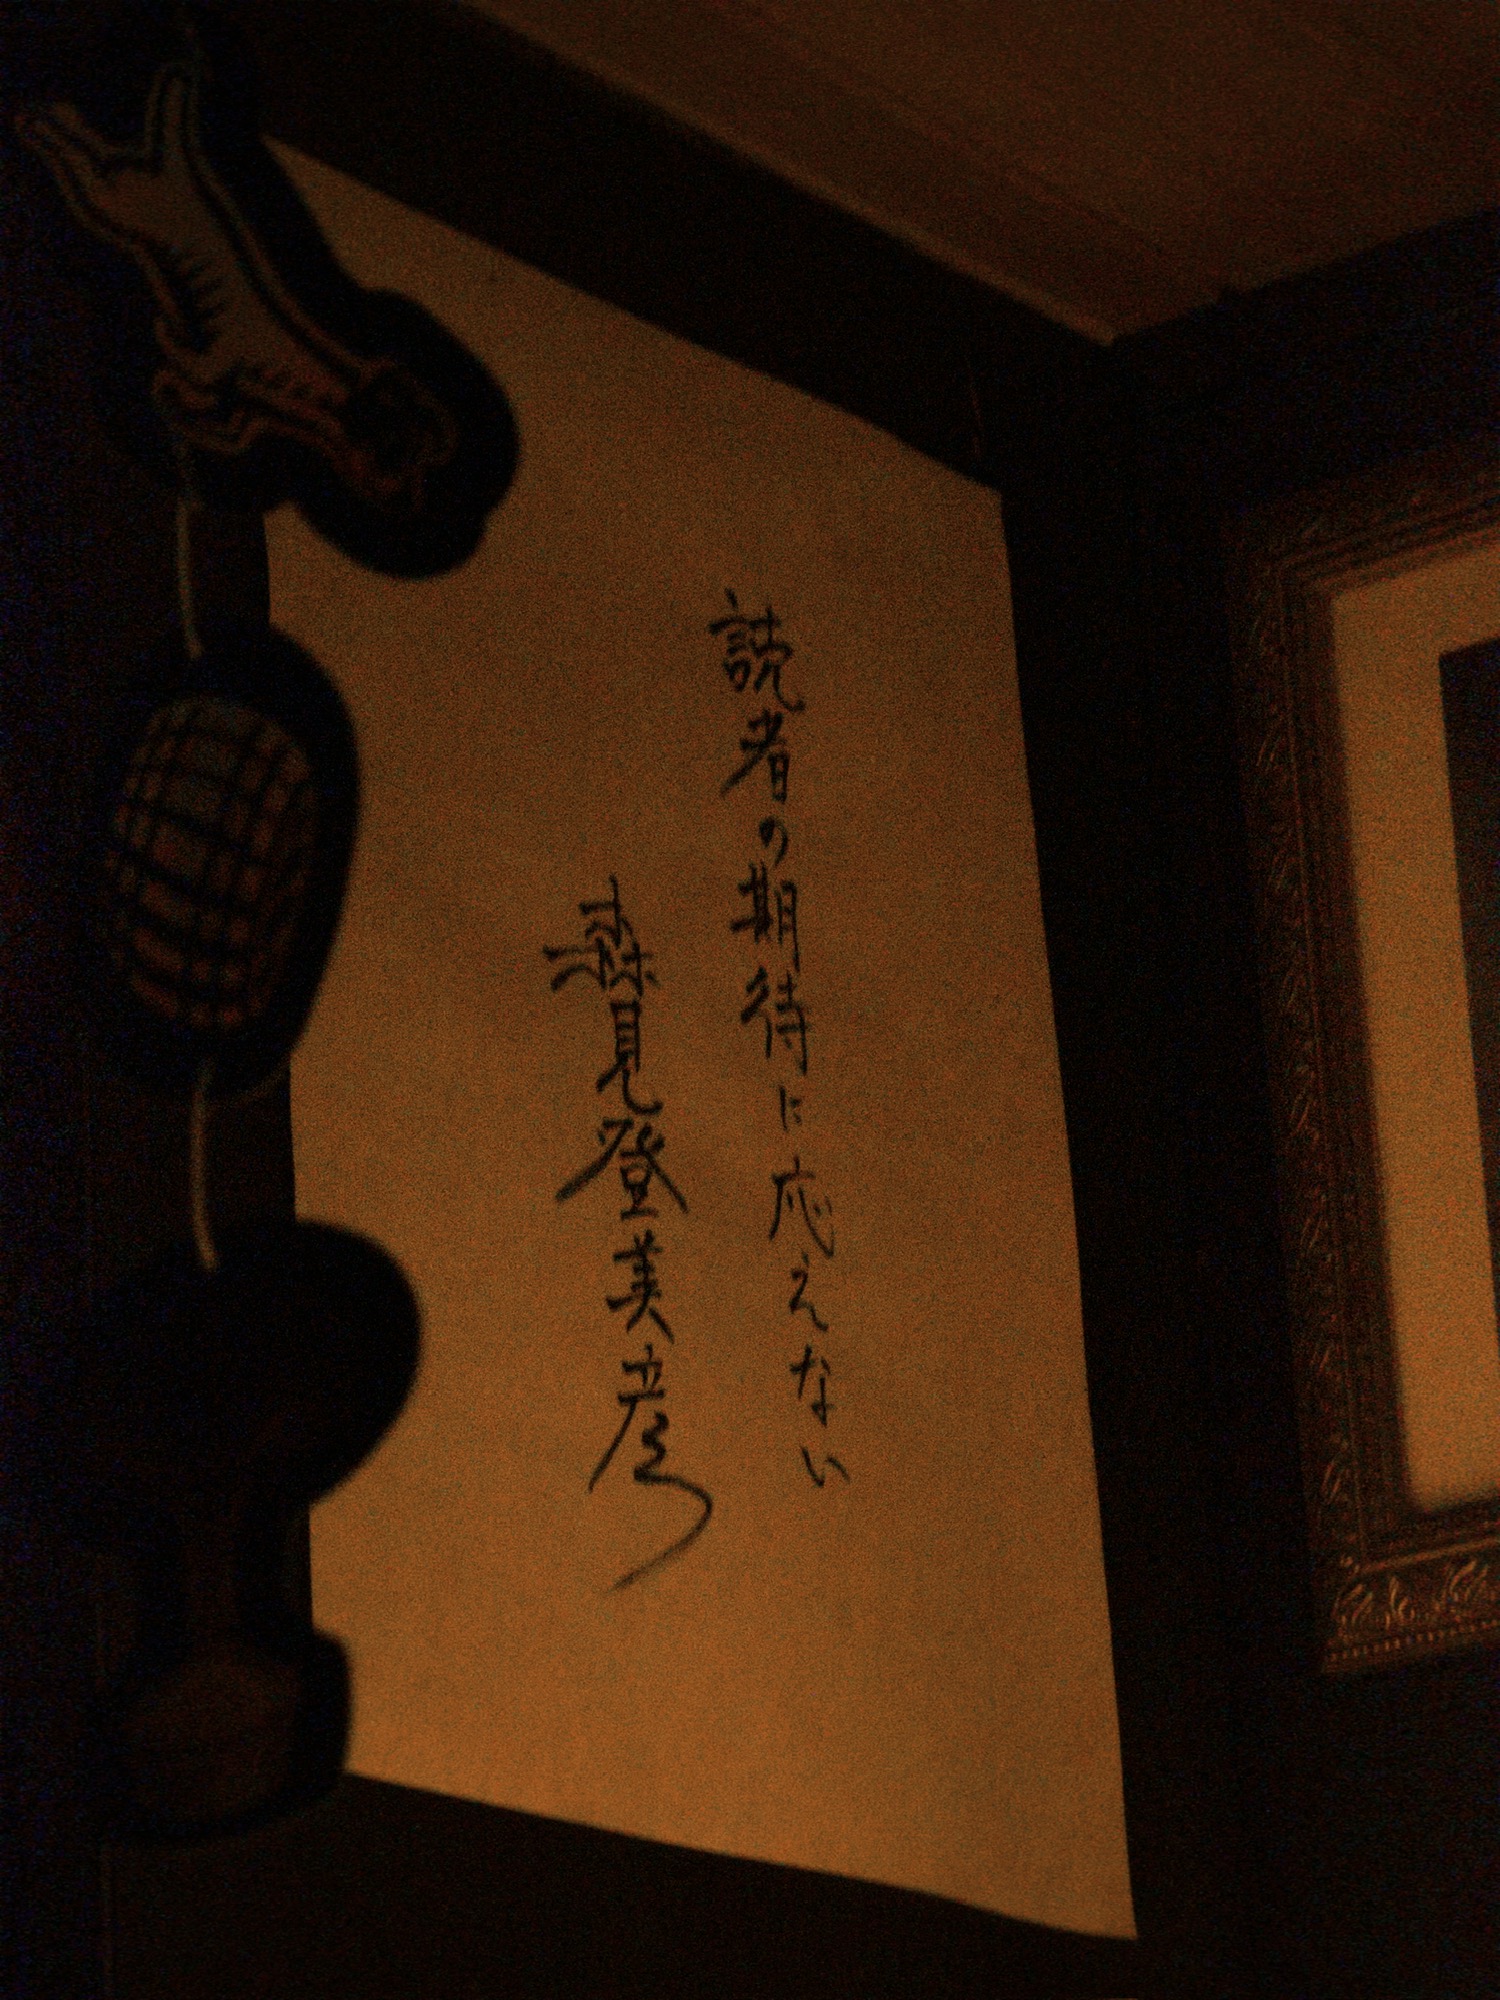 読者の期待に応えない
森見登美彦